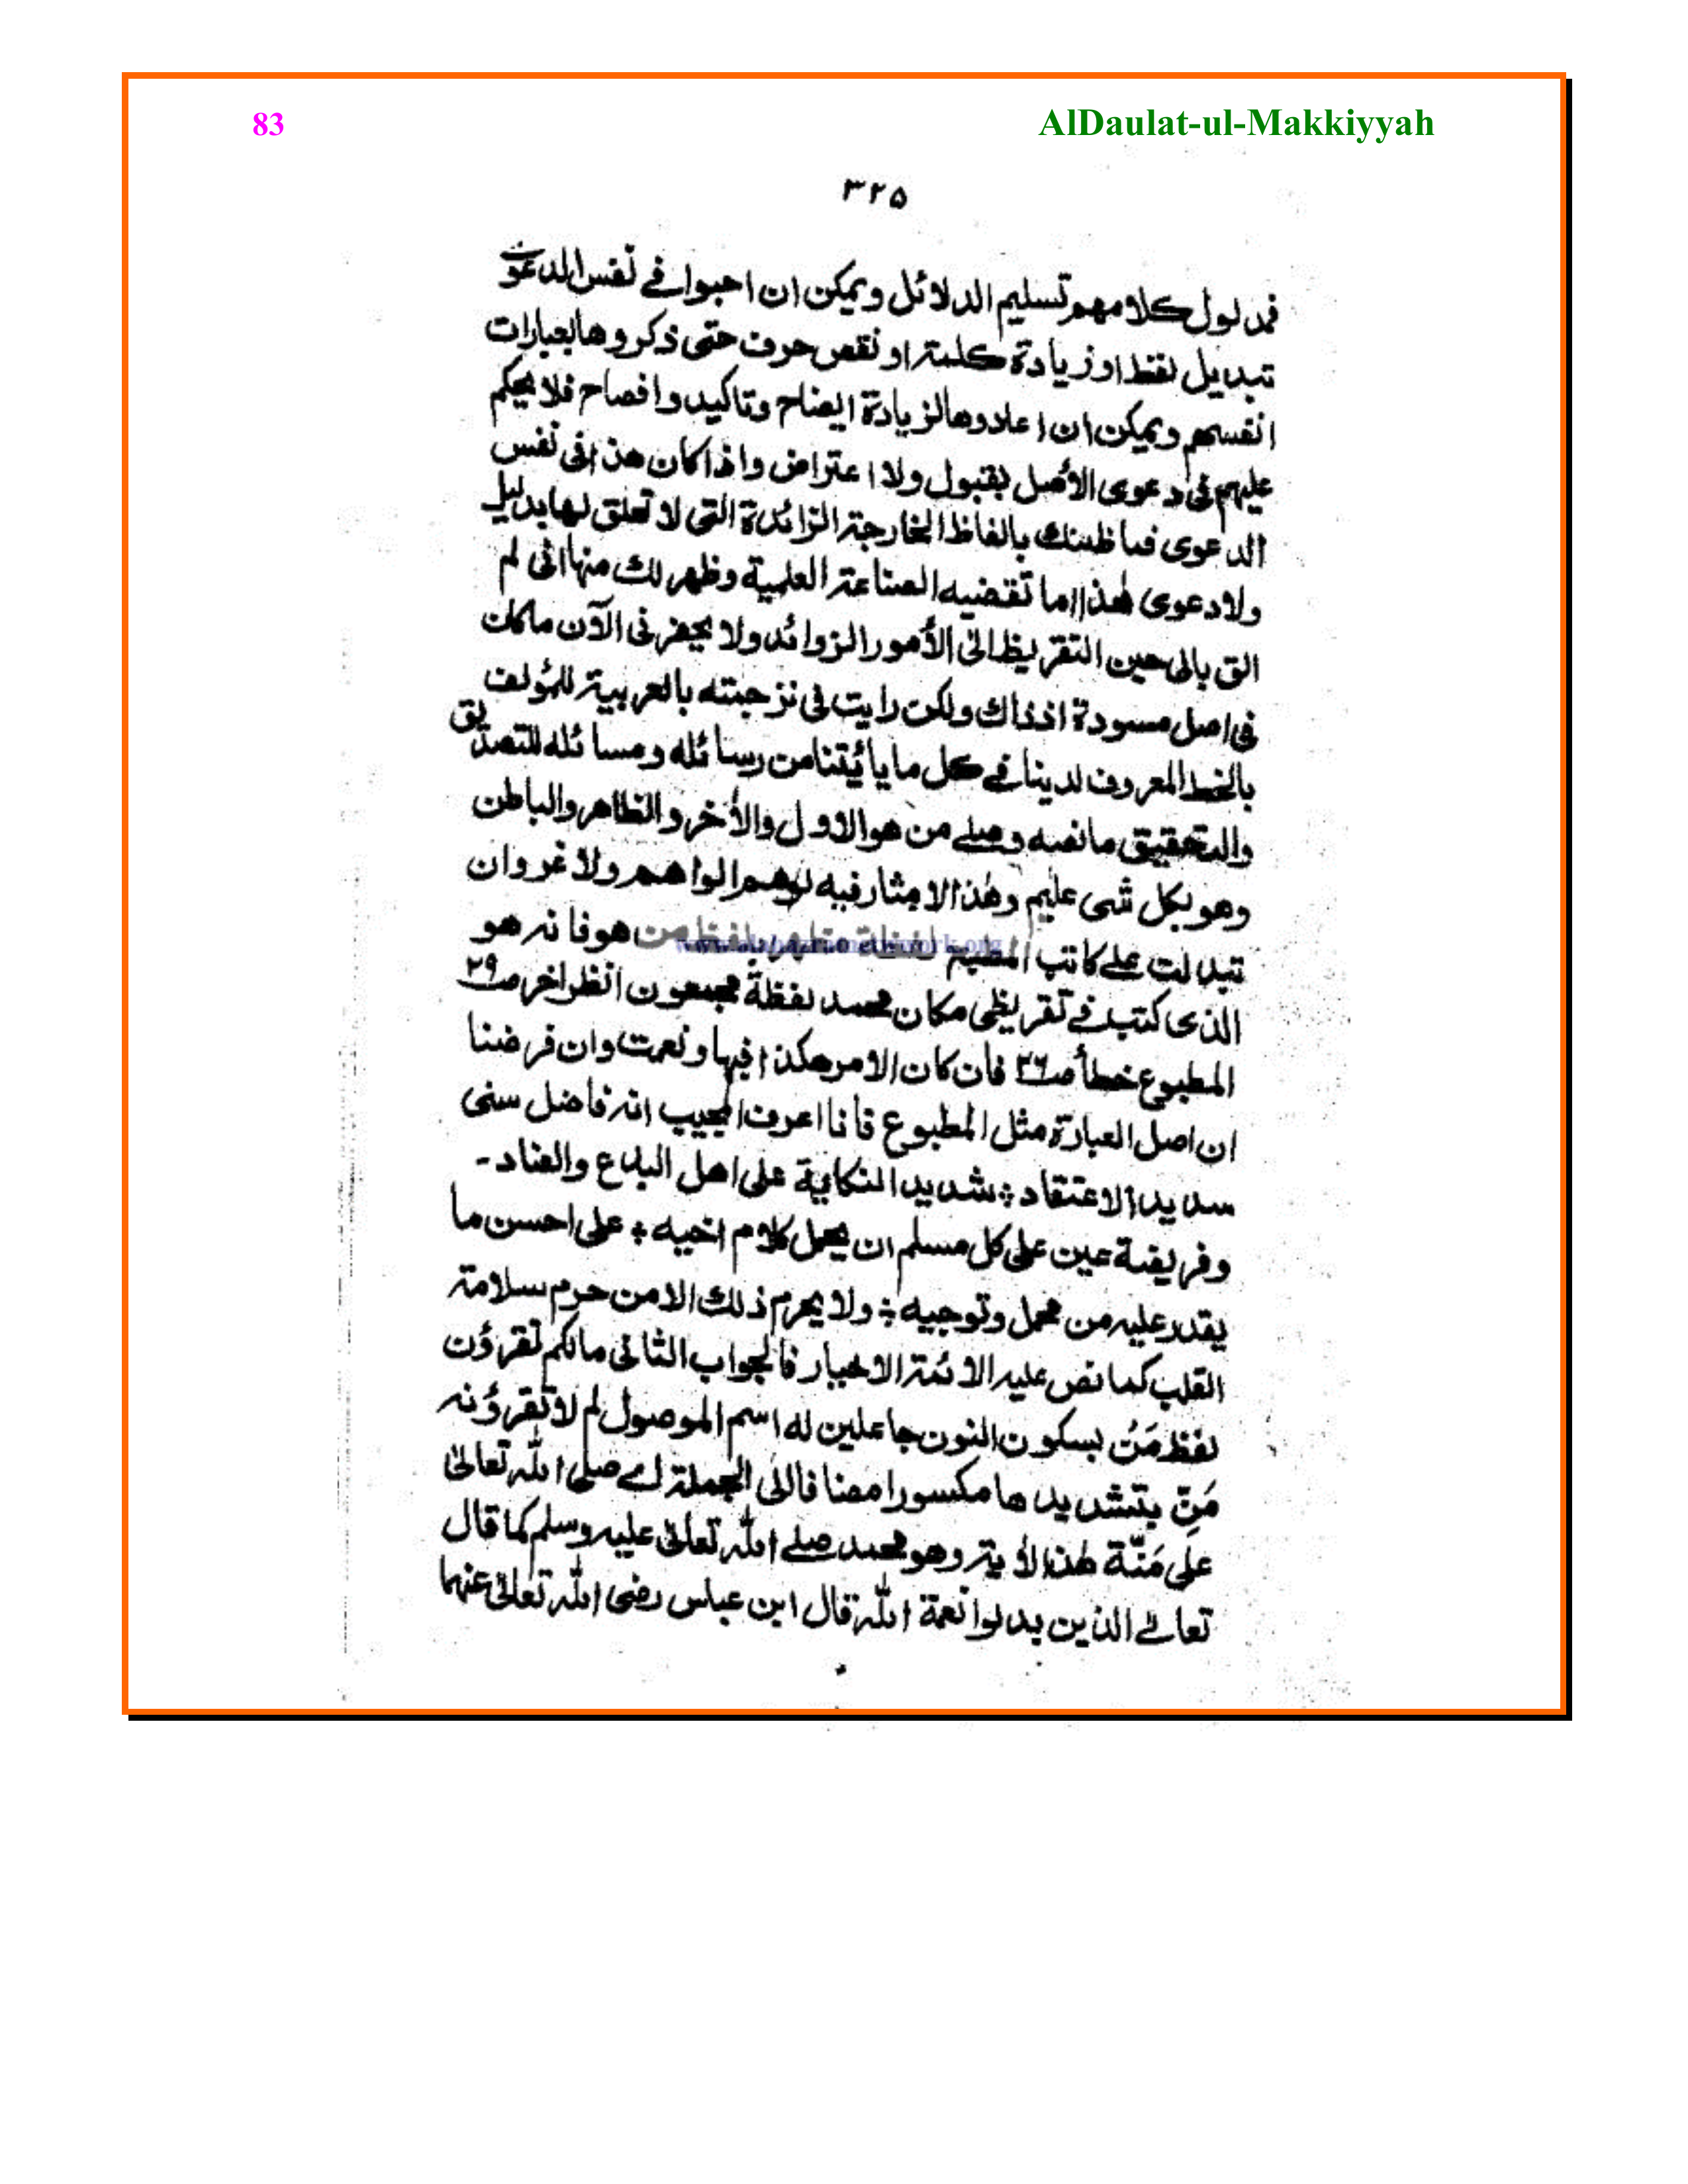 83
AlDaulat-ul-Makkiyyah
٣٢٥
فمدلول كلامهم تسليم الدلائل ويمكن ان احبوا في نفس الدعوى
تبديل لفظ او زيادة كلمة او نقص حرف حتى ذكروها بعبارات
انفسهم ويمكن ان اعادوها لزيادة ايضاح وتاكيد وافصاح فلا يحكم
عليهم فى دعوى الأصل بقبول ولا اعتراض واذا كان هذا فى نفس
الدعوى فما ظنك بالفاظ الخارجة الزائدة التى لا تعلق لها بدليل
ولا دعوى هٰذا ما تقضيه الصناعة العلمية وظهر لك منها انى لم
الق بالى حين التقريظ الى الأمور الزوائد ولا يحضرنى الآن ماكان
فى اصل مسودة اذ ذاك ولكن رايت فى نزجمته بالعربية للمؤلف
بالخط المعروف لدينا في كل ما يأتينا من رسائله ومسائله للتصديق
والتحقيق مانصه وصلے من هو الاول والأخر والظاهر والباطن
وهو بكل شى عليم وهٰذا الا مثار فيه لوهم الواهم ولا غروان
تبدلت على كاتب المطبع لفظة بلفظ من هو فانه هو
www.alahazratnetwork.org
الذى كتب في تقريظى مكان محمد لفظة مجمعون انظر اخر صـ٢٩
المطبوع خطأ صـ٣٦ فان كان الامر هكذا فبها ونعمت وان فرضنا
ان اصل العبارة مثل المطبوع فانا اعرف المجيب انه فاضل سنى
سديد الاعتقاد ؛ شديد النكاية على اهل البدع والعناد۔
وفريضة عين على كل مسلم ان يحمل كلام اخيه ؛ على احسن ما
يقدر عليه من محمل وتوجيه ؛ ولا يحرم ذلك الا من حرم سلامة
القلب كما نص عليه الائمة الاخيار فالجواب الثانى مالكم تقرؤن
لفظ مَنْ بسكون النون جاعلين له اسم الموصول لم لا تقرؤنه
مَنِّ بتشديدها مكسورا مضافا الى الجملة اے صلى الله تعالىٰ
على مَنّة هٰذه الأية وهو محمد صلے الله تعالىٰ عليه وسلم كما قال
تعالىٰ الذين بدلوا نعمة الله قال ابن عباس رضى الله تعالىٰ عنهما